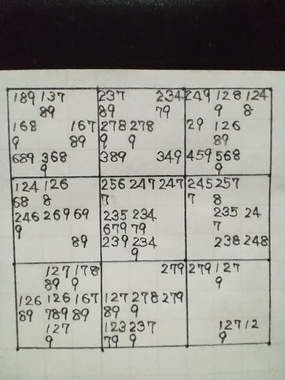 189 137 237 234 249 128 124
89 89 79 9 8
168 167 278 278 29 126
9 89 9 9 89
689 368 389 349 459 568
9 9
124 126 256 247 247 245 257
68 8 7 7 8
246 269 69 235 234 235 24
9 679 79 7
89 239 234 238 248
9
127 178 279 279 127
89 9 9
126 126 167 127 278 279
89 789 89 89 9
127 123 237 127 12
9 79 9 9